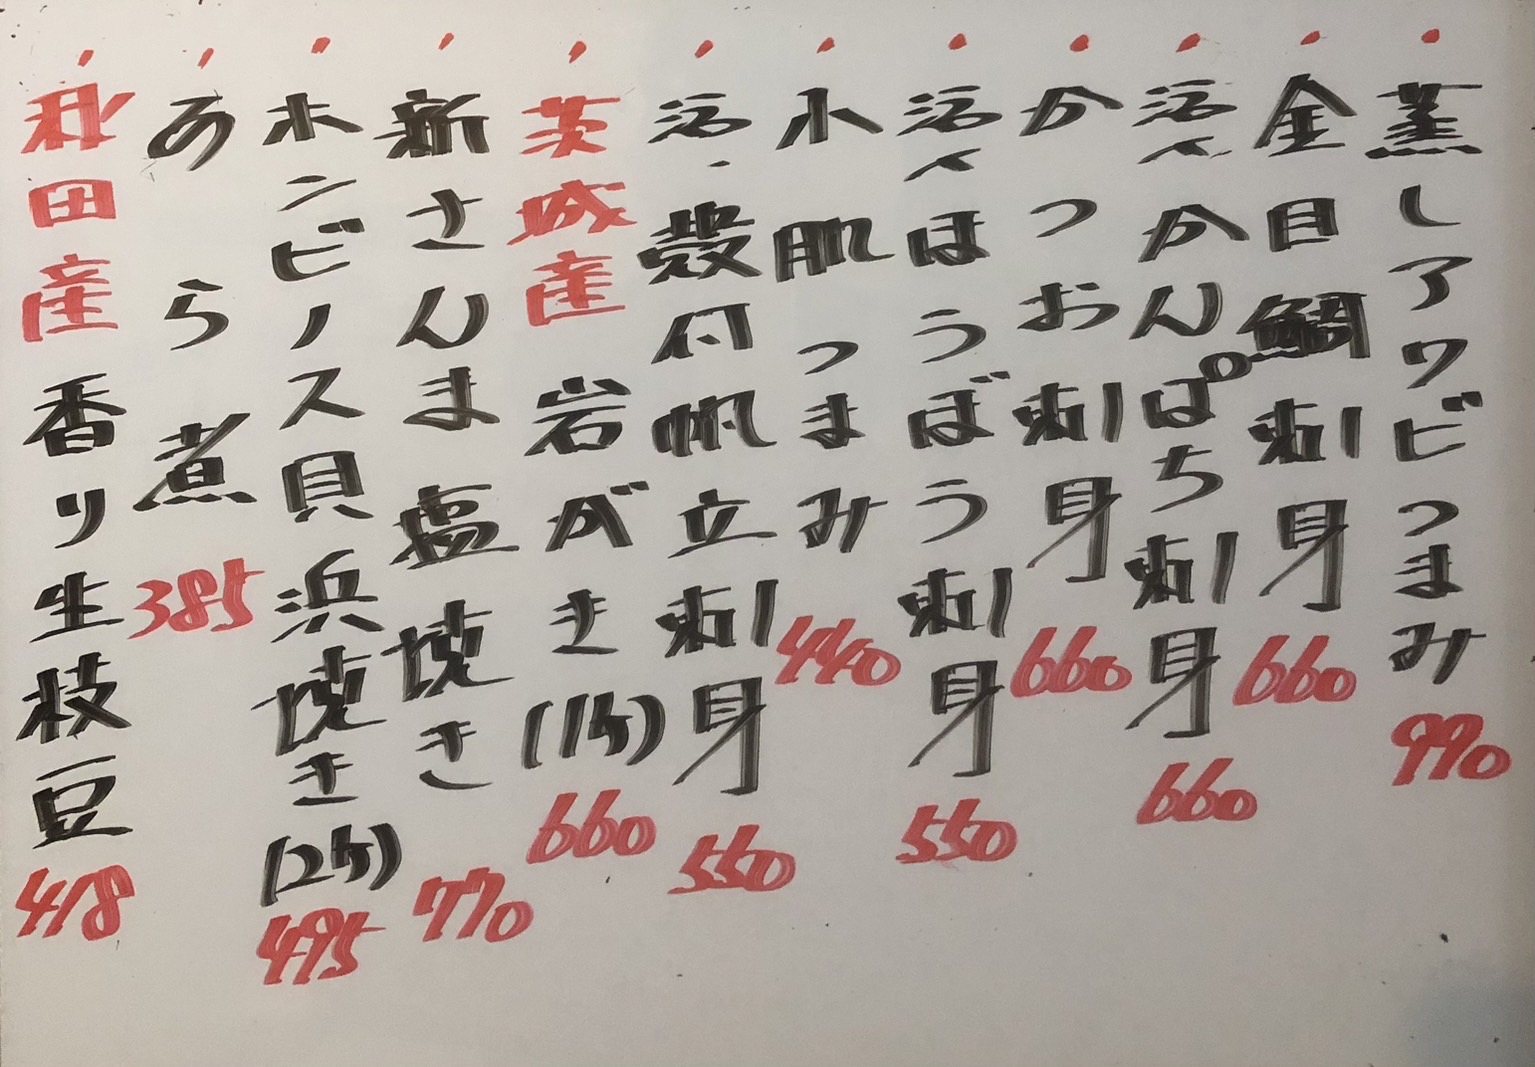 ・蒸しアワビつまみ 990
・金目鯛刺身 660
・活〆かんぱち刺身 660
・かつお刺身 660
・活〆ほうぼう刺身 550
・小肌つまみ 440
・活・殻付帆立刺身 550
・茨城産岩がき(1ケ) 660
・新さんま塩焼き 770
・ホンビノス貝浜焼き(2ケ) 495
・あら煮 385
・秋田産香り生枝豆 418